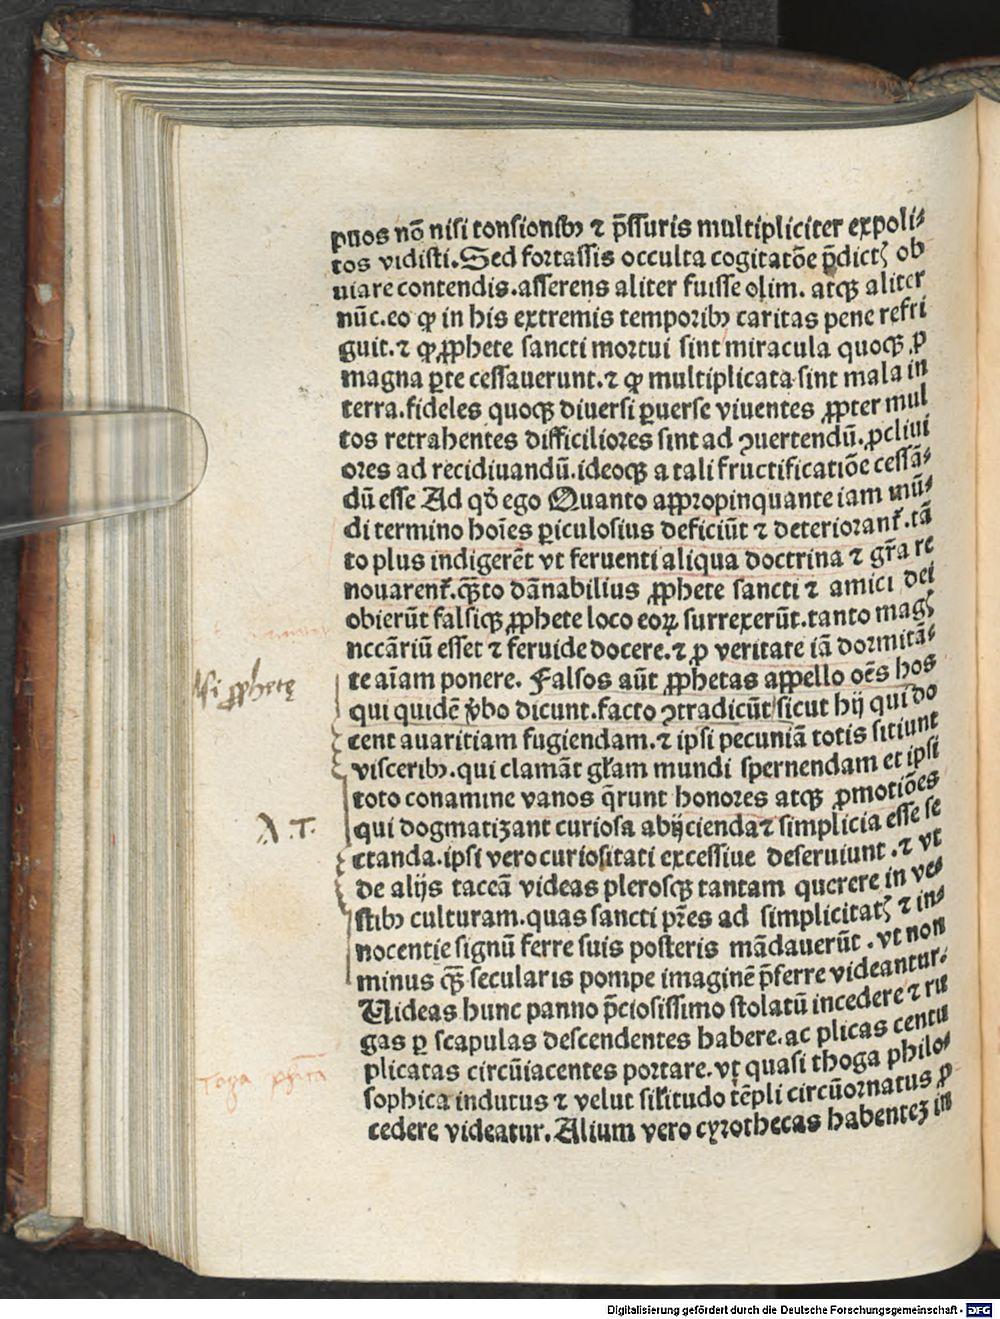 puos nō nisi tonsionibꝫ ⁊ p̄ssuris multipliciter expoli⸗
tos vidisti. Sed fortassis occulta cogitatōe p̄dictꝭ ob
uiare contendis. asserens aliter fuisse olim. atqꝫ aliter
nūc. eo ꝙ in his extremis temporibꝫ caritas pene refri
guit. ⁊ ꝙ ꝓphete sancti mortui sint miracula quoqꝫ ꝓ
magna ꝑte cessauerunt. ⁊ ꝙ multiplicata sint mala in
terra. fideles quoqꝫ diuersi ꝑuerse viuentes ꝓpter mul
tos retrahentes difficiliores sint ad ꝯuertendū. ꝓcliui
ores ad recidiuandū. ideoqꝫ a tali fructificatiōe cessā⸗
dū esse Ad qð ego Quanto appropinquante iam mū⸗
di termino hoīes ꝑiculosius deficiūt ⁊ deteriorant̄. tā
to plus indigerēt vt feruenti aliqua doctrina ⁊ gr̄a re
nouarent̄. qͣ̄to dānabilius ꝓphete sancti ⁊ amici dei
obierūt falsiqꝫ ꝓphete loco eoꝝ surrexerūt. tanto magꝭ
nccāriū esset ⁊ feruide docere. ⁊ ꝓ veritate iā dormitā⸗
te aīam ponere. Falsos aūt ꝓphetas appello oēs hos
qui quidē v̄bo dicunt. facto ꝯtradicūt sicut hij qui do
cent auaritiam fugiendam. ⁊ ipsi pecuniā totis sitiunt
visceribꝫ. qui clamāt gl̄am mundi spernendam et ipsi
toto conamine vanos q̄runt honores atqꝫ ꝓmotiōes
qui dogmatizant curiosa abijcienda ⁊ simplicia esse se
ctanda. ipsi vero curiositati excessiue deseruiunt. ⁊ vt
de alijs taceā videas plerosqꝫ tantam querere in ves
stibꝫ culturam. quas sancti pr̄es ad simplicitatꝭ ⁊ in⸗
nocentie signū ferre suis posteris mādauerūt. vt non
minus qͣ̄ secularis pompe imaginē p̄ferre videantur.
Uideas hunc panno p̄ciosissimo stolatū incedere ⁊ ru
gas ꝑ scapulas descendentes habere. ac plicas centu
plicatas circūiacentes portare. vt quasi thoga philo⸗
sophica indutus ⁊ velut sil̄itudo tēpli circūornatus ꝓ
cedere videatur. Alium vero cyrothecas habentez in
lsi ꝓphetę
λ. T.
Toga ph̄ica
Digitalisierung gefördert durch die Deutsche Forschungsgemeinschaft - DFG